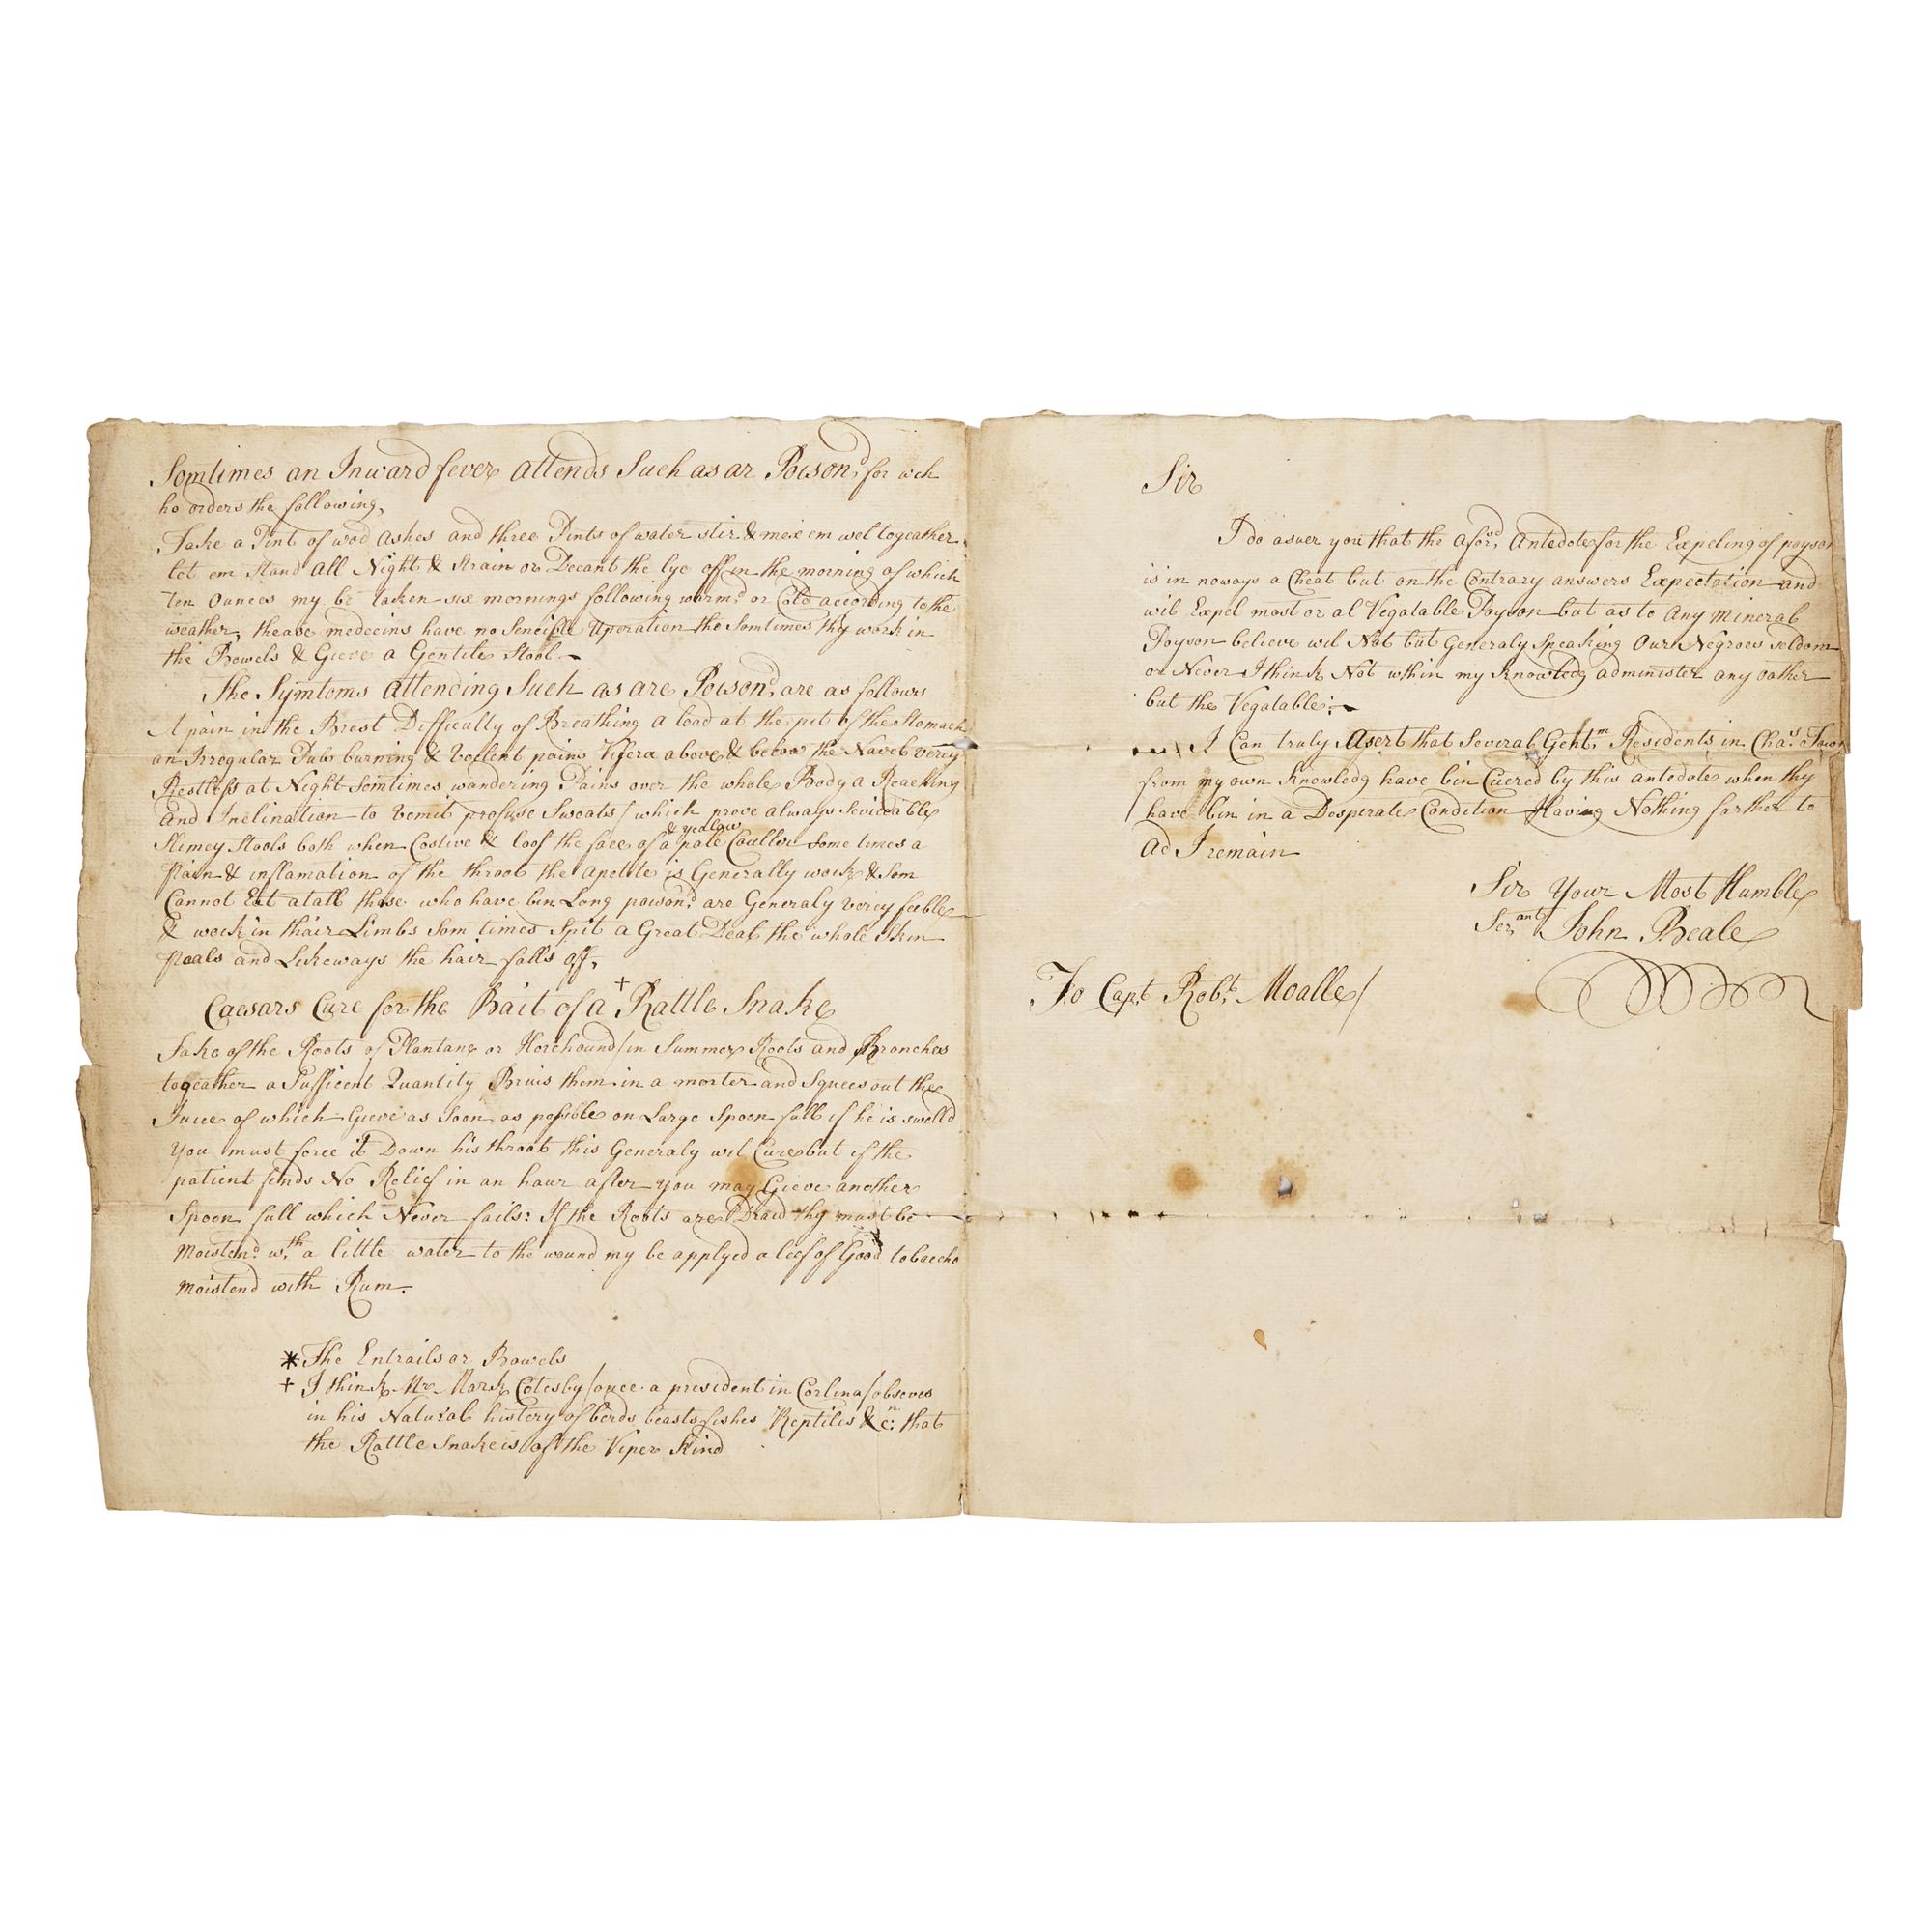 Somtimes an Inward fever attends Such as ar Poison,d for wch
he orders the following,
Take a Pint of wod ashes and three Pints of water stir & mix em wel togeather
let em Stand All Night & Strain or Decant the lye off in the morning of which
Ten Ounces my be taken six mornings following warm,d or Cold according to the
weather, thease medecins have no Sencible Operation tho Somtimes thy work in
the Bowels & Gieve a Gentile Stool.
The Symtoms attending Such as are Poison,d are as follows
A pain in the Brest Difficulty of Breathing a load at the pit of the Stomach
an Irregular Puls burning & voilent pains Visera above & below the Navel verey
Restless at Night Somtimes wandering Pains over the whole Body a Reaching
And Inclination to vomit profuse Sweats / which prove always Seviceable
Slimey Stools both when Costive & loos the face of a pale & yealow Couller Some times a
Pain & inflamation of the throot the apetite is Generally week & Som
Cannot Eat atall those who have bin Long poison,d are Generaly verey feeble
& week in thair Limbs Som times Spit a Great Deal the whole Skin
Peals and Likeways the hair falls off,
Caesars Cure for the Bait of a + Rattle Snake
Take of the Roots of Plantane or Horehound / in Summer Roots and Branches
togeather a Sufficent Quantity Bruis them in a morter and Squees out the
Juice of which Gieve as Soon as possible on Large Spoon full if he is swelld
You must force it Down his throat this Generaly wil Cure but if the
patient finds No Relief in an haur after you may Gieve another
Spoon full which Never fails: If the Roots are Draid thy must be
Moisten,d w,th a little water to the wound my be applyed a leef of Good tobaccho
moistend with Rum.
* The Entrails or Bowels
+ I think Mr. Mark Catesby / once a president in Carlina / obseves
in his Natural histery of birds beasts fishes Reptiles & c:n that
the Rattle Snake is of the Viper Kind
Sir
I do asuer you that the afors,d Antedote for the Expeling of poyson
is in noways a Cheat but on the Contrary answers Expectation and
wil Expel most or al Vegatable Poyson but as to Any Mineral
Poyson believe wil Not but Generaly Speaking Our Negroes seldom
or Never I think Not within my Knowledg administer any oather
but the Vegatable:
I Can truly Asert that Several Gentm Residents in Chas Town
from my own Knowledg have bin Cuered by this antedote when thy
have bin in a Desperate Condition Having Nothing farther to
Ad I remain
Sir Your Most Humble
Ser,ant John Beale
To Capt. Robt. Moalle /